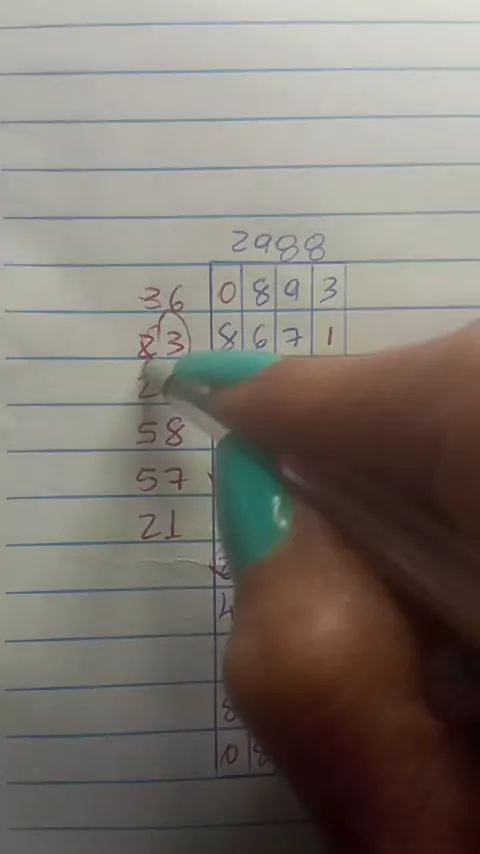 2988
36 0 8 9 3
83 8 6 7 1
2
58
57
21
4
8
0 8